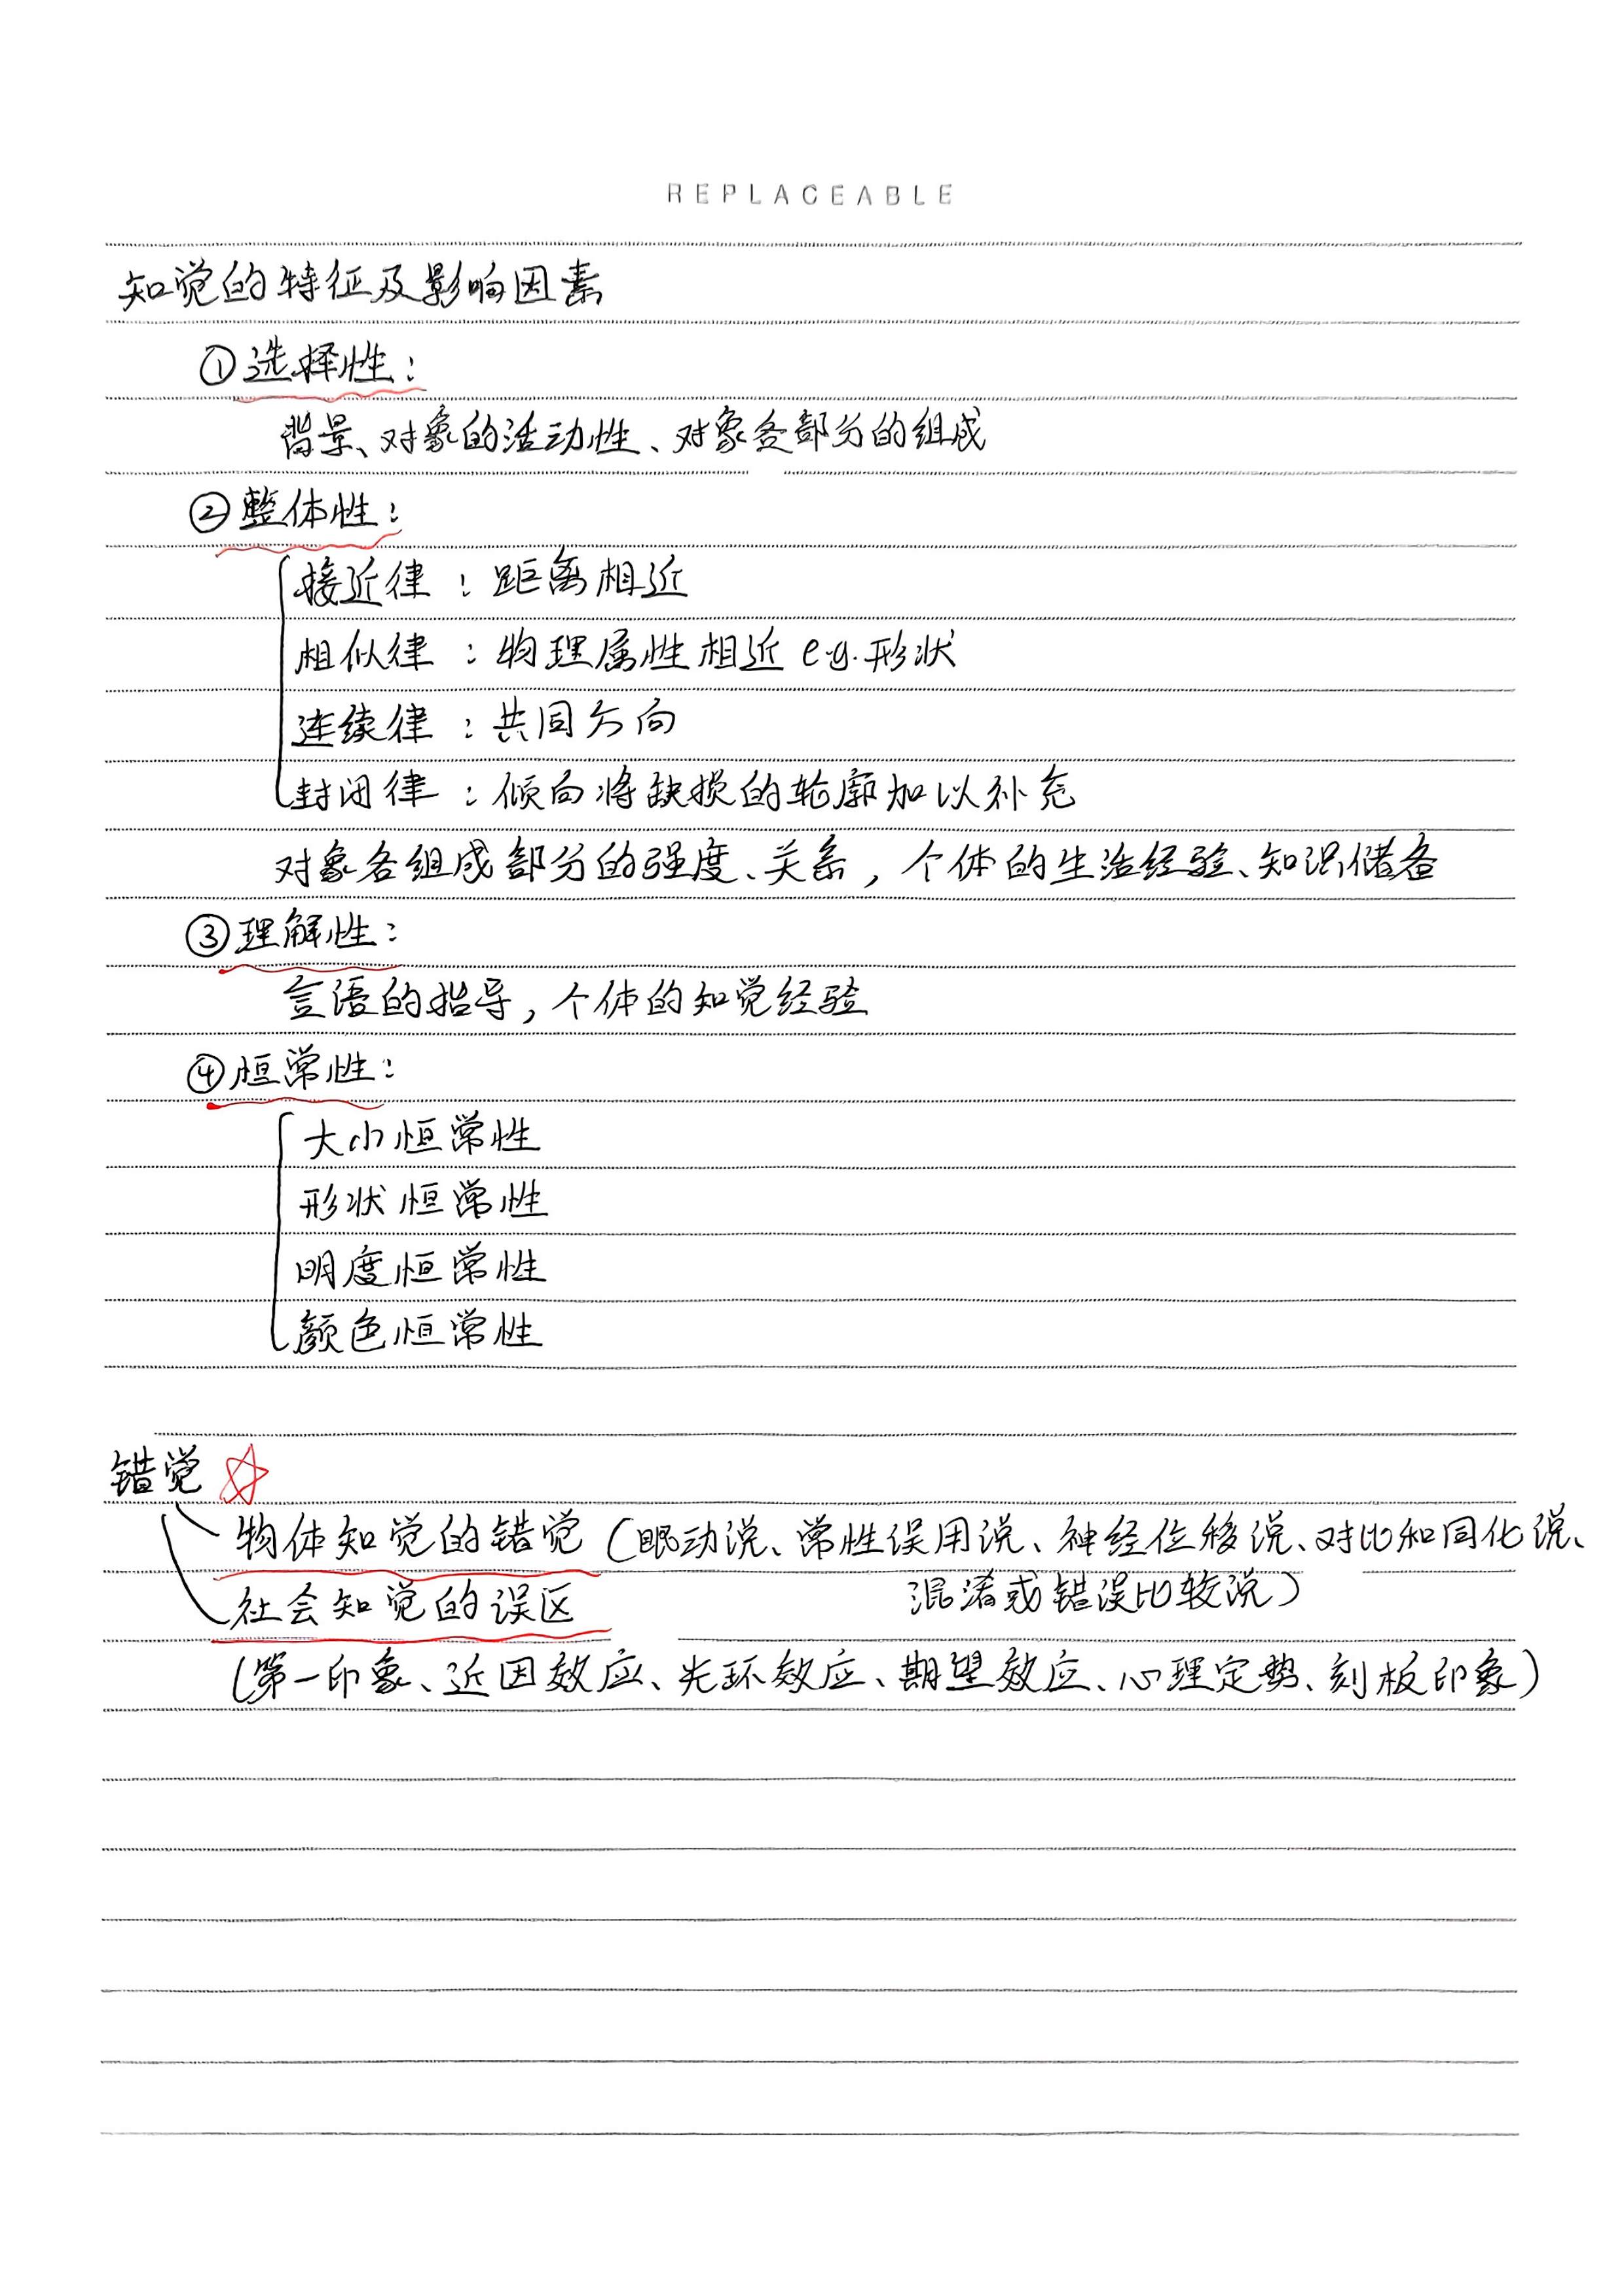 REPLACEABLE
知觉的特征及影响因素
①选择性：
背景、对象的活动性、对象各部分的组成
②整体性：
接近律：距离相近
相似律：物理属性相近 e.g.形状
连续律：共同方向
封闭律：倾向将缺损的轮廓加以补充
对象各组成部分的强度、关系，个体的生活经验、知识储备
③理解性：
言语的指导，个体的知觉经验
④恒常性：
大小恒常性
形状恒常性
明度恒常性
颜色恒常性
错觉
物体知觉的错觉（眼动说、常性误用说、神经位移说、对比和同化说、
混淆或错误比较说）
社会知觉的误区
（第一印象、近因效应、光环效应、期望效应、心理定势、刻板印象）